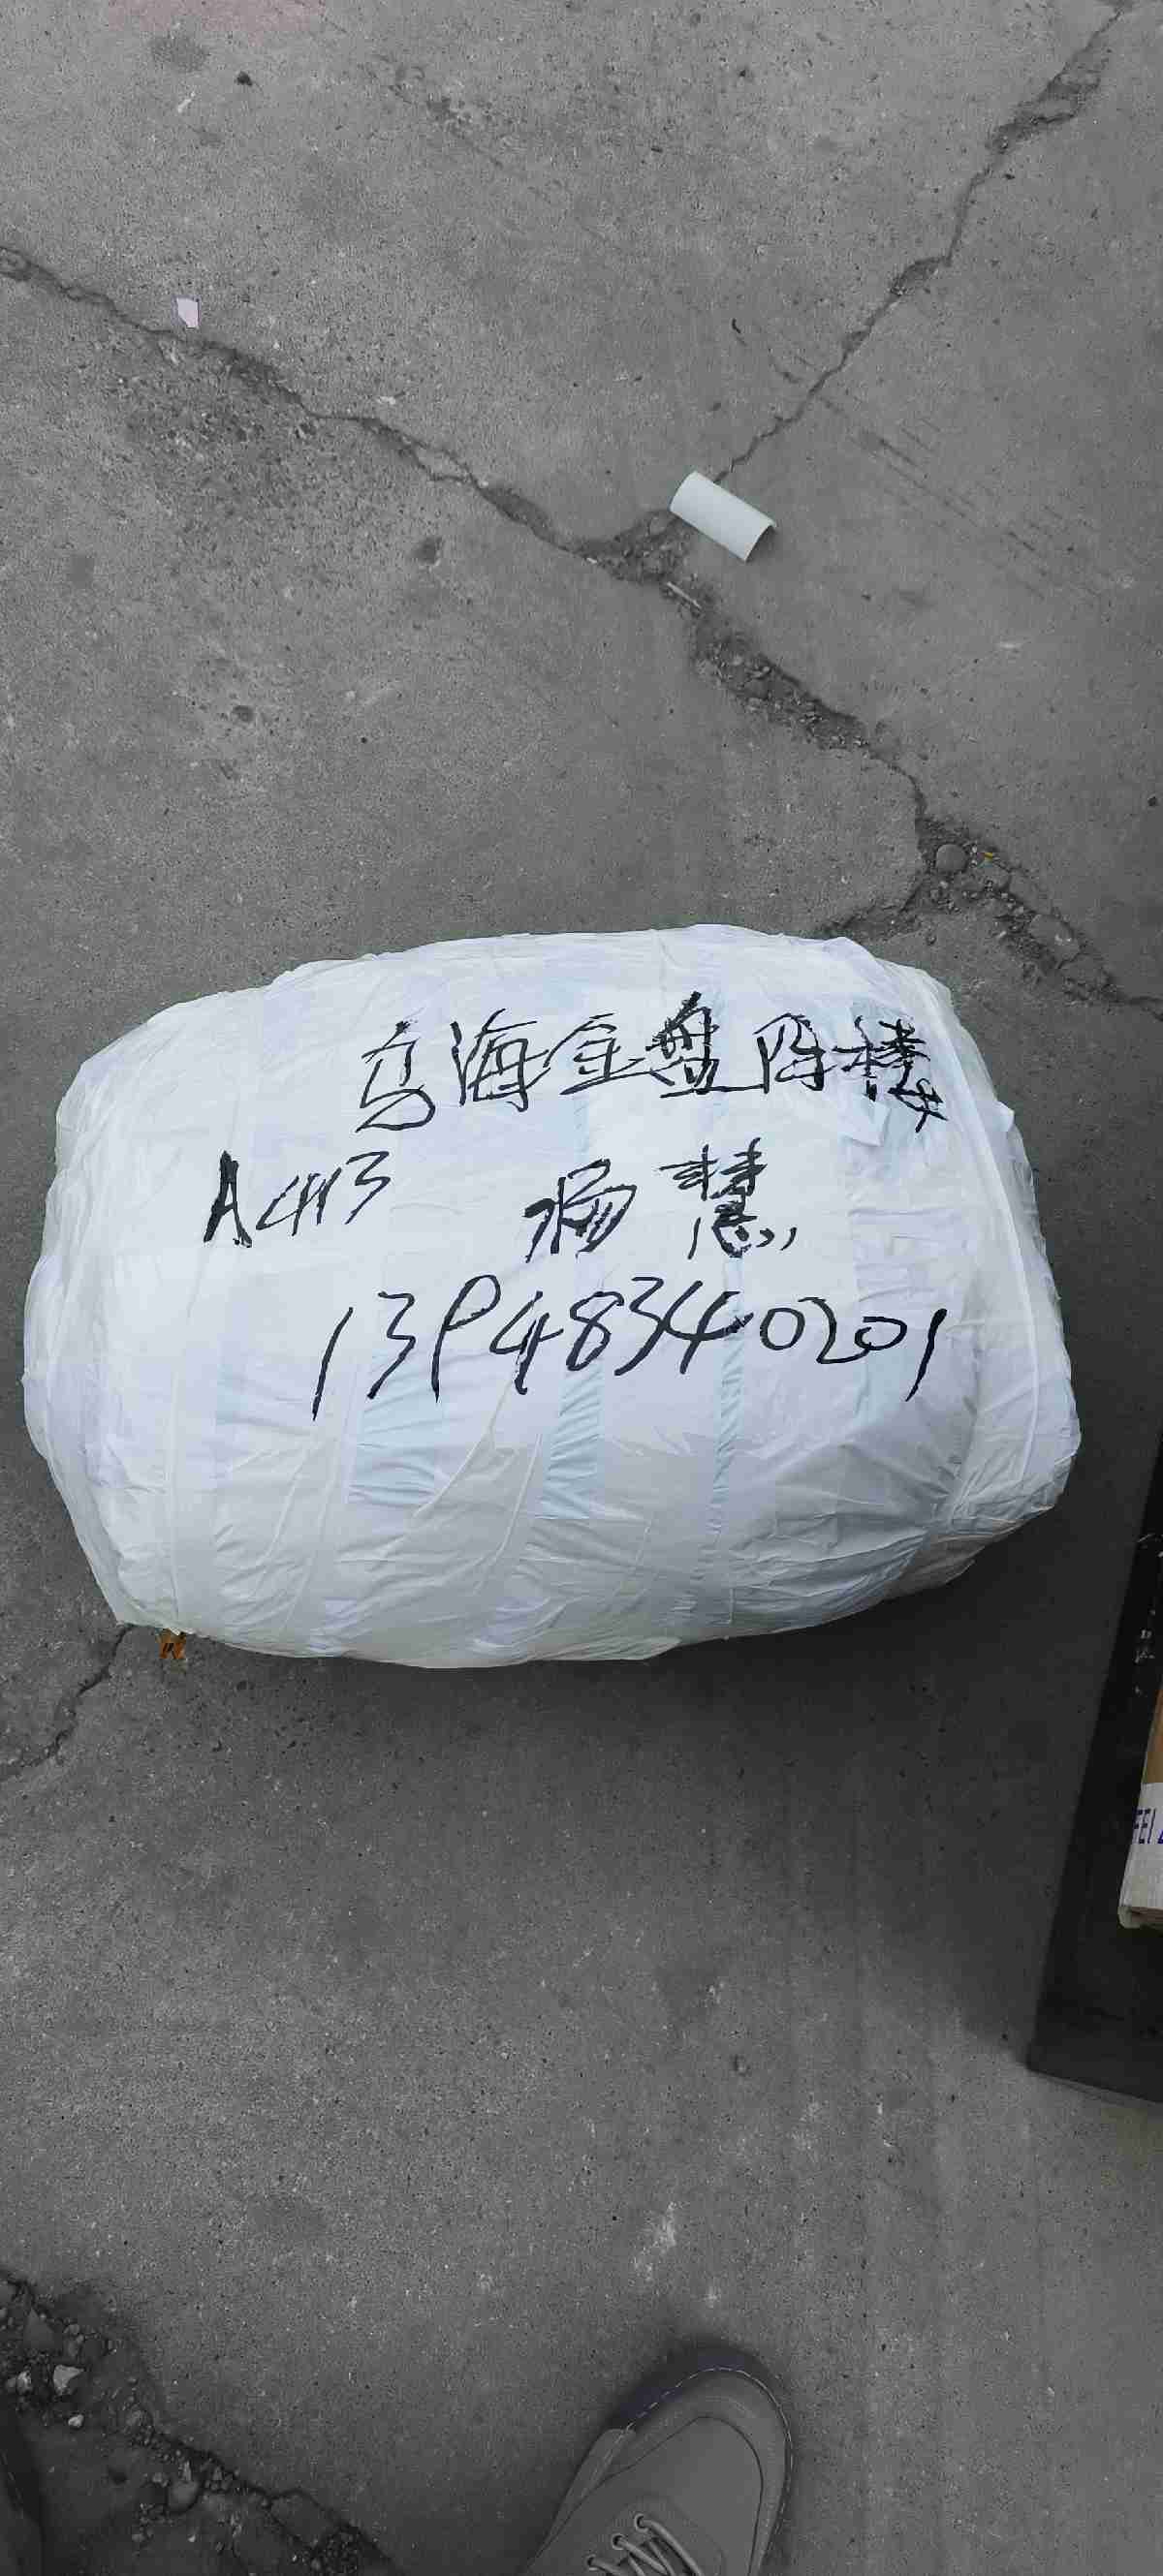 乌海金盘阵楼
A4113 杨慧
13948340201
FEI